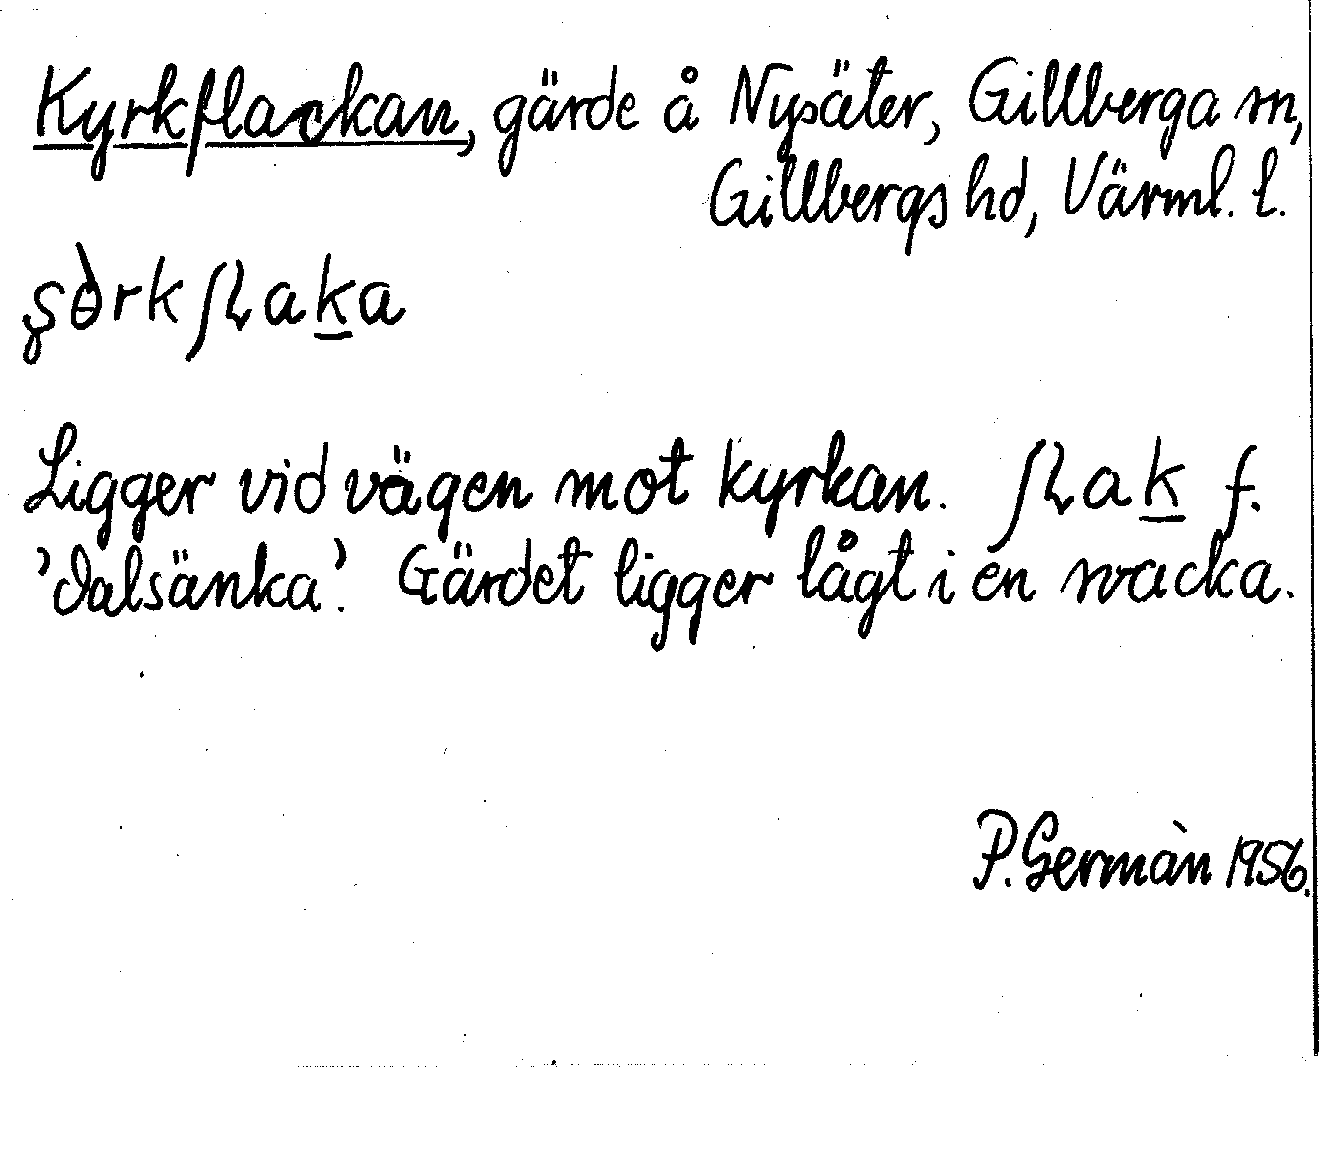 Kyrkflackan, gärde å Nysäter, Gillberga sn,
Gillbergs hd, Värml. l.
Ligger vid vägen mot kyrkan. f.
'dalsänka'. Gärdet ligger lågt i en svacka.
P. Germàn 1956.